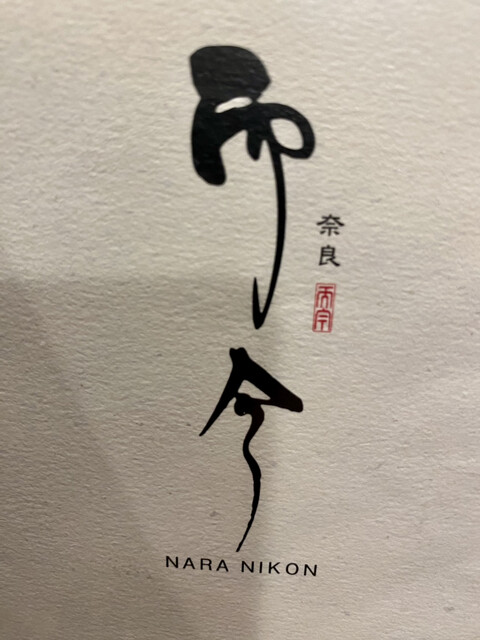 奈良
而今
NARA NIKON